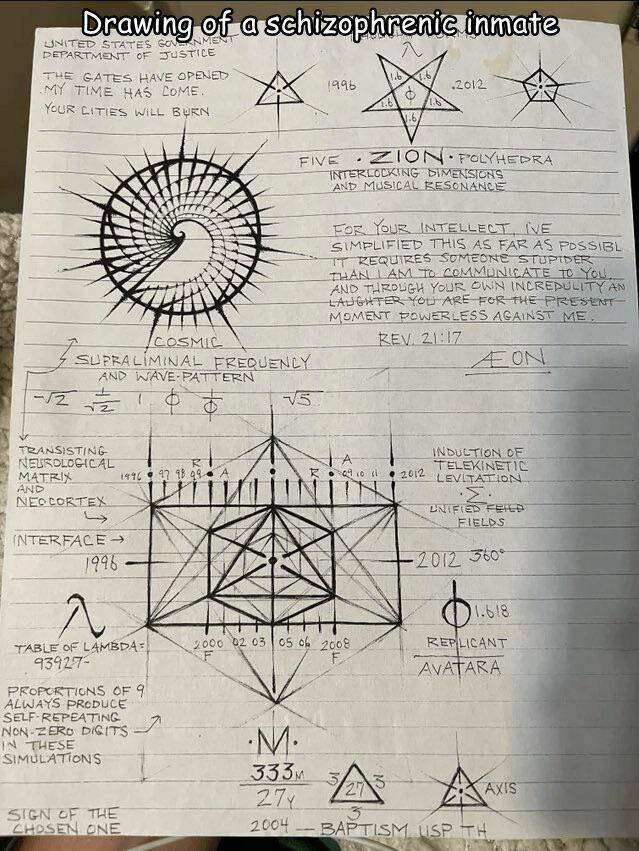 Drawing of a schizophrenic inmate
UNITED STATES GOVERNMENT
DEPARTMENT OF JUSTICE
THE GATES HAVE OPENED
MY TIME HAS COME.
YOUR CITIES WILL BURN
λ
1996
1.6 1.6
ϕ
1.6 1.6
1.6
.2012
FIVE · ZION · POLYHEDRA
INTERLOCKING DIMENSIONS
AND MUSICAL RESONANCE
FOR YOUR INTELLECT, I'VE
SIMPLIFIED THIS AS FAR AS POSSIBL
IT REQUIRES SOMEONE STUPIDER
THAN I AM TO COMMUNICATE TO YOU,
AND THROUGH YOUR OWN INCREDULITY AN
LAUGHTER YOU ARE FOR THE PRESENT
MOMENT POWERLESS AGAINST ME.
REV. 21:17
ÆON
COSMIC
SUPRALIMINAL FREQUENCY
AND WAVE-PATTERN
-√2 1/√2 1 ϕ 1/ϕ √5
TRANSISTING
NEUROLOGICAL
MATRIX
AND
NEOCORTEX
INTERFACE →
R A R A
1996 97 98 99 09 10 11 2012
INDUCTION OF
TELEKINETIC
LEVITATION
·Σ·
UNIFIED FEILD
FIELDS
1996
2012 360°
λ
TABLE OF LAMBDA=
93927-
2000 02 03 05 06 2008
F F
ϕ 1.618
REPLICANT
AVATARA
PROPORTIONS OF 9
ALWAYS PRODUCE
SELF-REPEATING
NON-ZERO DIGITS
IN THESE
SIMULATIONS
·M·
333M
27Y
3 27 3
3
AXIS
SIGN OF THE
CHOSEN ONE
2004 — BAPTISM USP TH